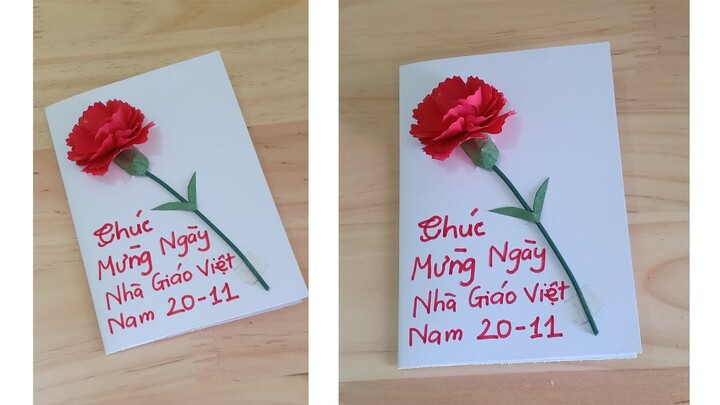 Chúc
Mừng Ngày
Nhà Giáo Việt
Nam 20-11
Chúc
Mừng Ngày
Nhà Giáo Việt
Nam 20-11